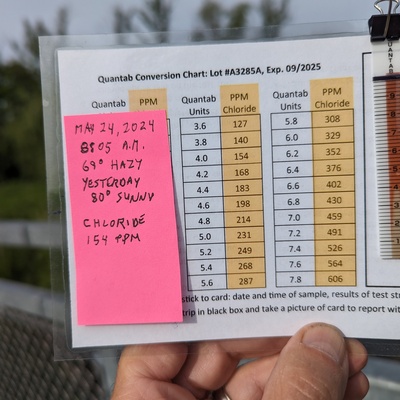 Quantab Conversion Chart: Lot #A3285A, Exp. 09/2025
Quantab PPM
MAY 24, 2024
8:05 A.M.
69° HAZY
YESTERDAY
80° SUNNY
CHLORIDE
154 PPM
Quantab Units PPM Chloride
3.6 127
3.8 140
4.0 154
4.2 168
4.4 183
4.6 198
4.8 214
5.0 231
5.2 249
5.4 268
5.6 287
Quantab Units PPM Chloride
5.8 308
6.0 329
6.2 352
6.4 376
6.6 402
6.8 430
7.0 459
7.2 491
7.4 526
7.6 564
7.8 606
QUANTAB
stick to card: date and time of sample, results of test st
trip in black box and take a picture of card to report wit